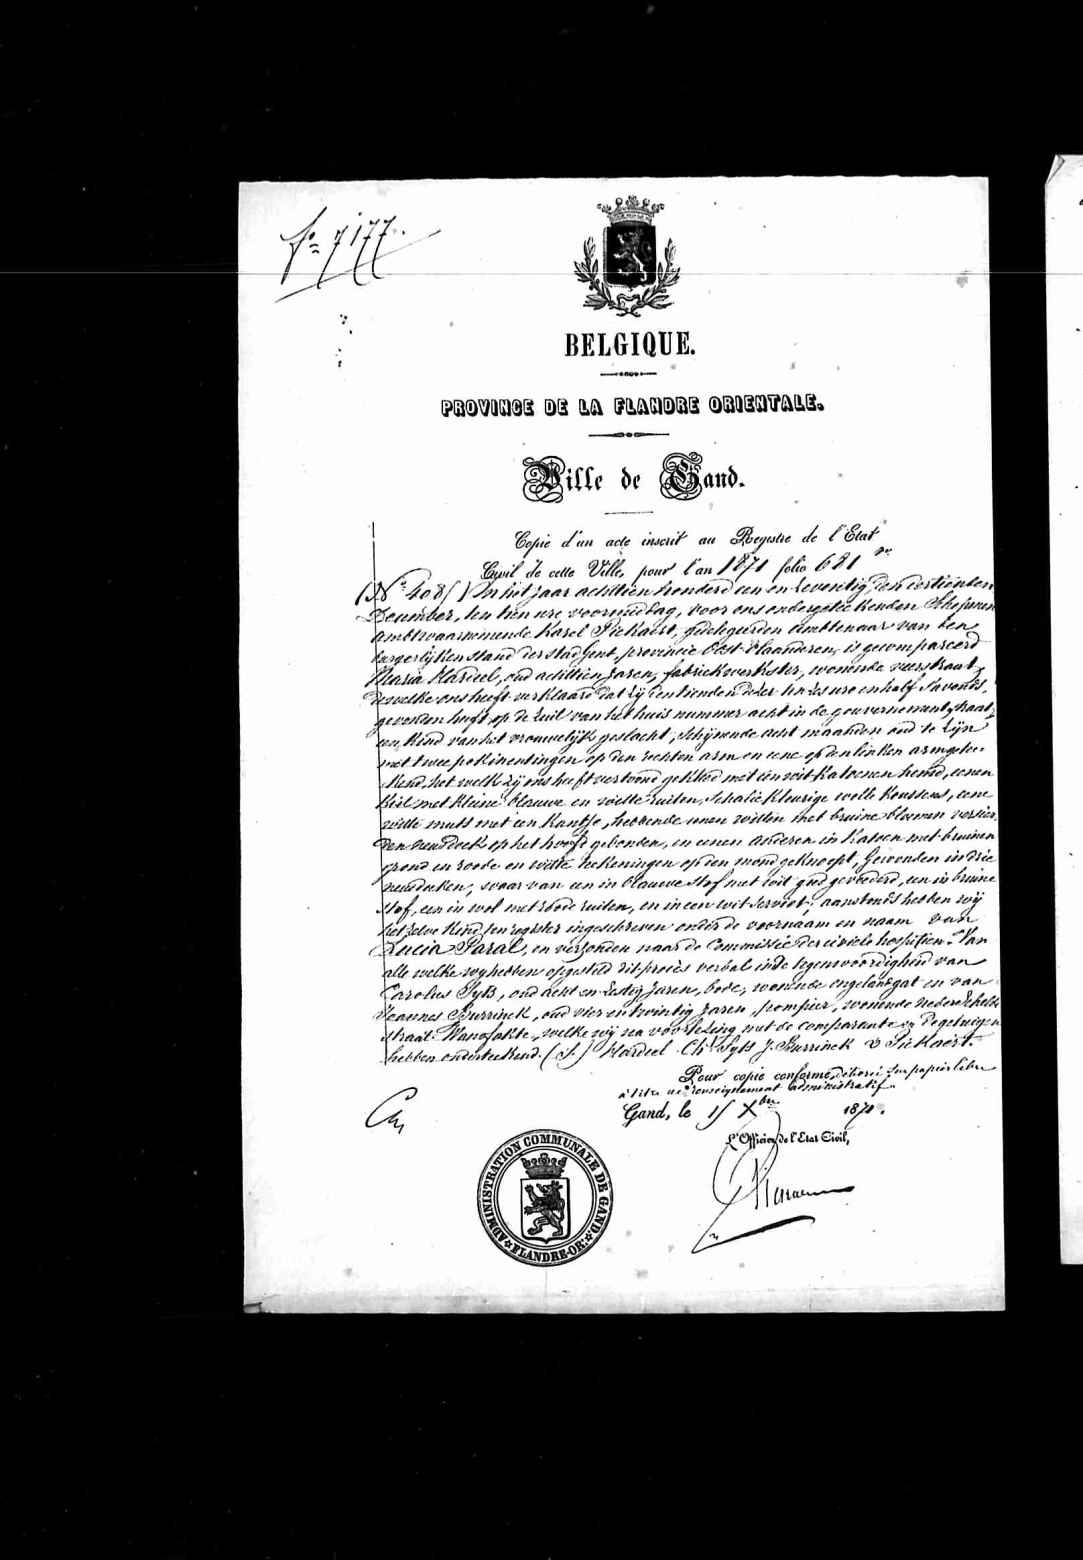 Nº 7177.
BELGIQUE.
PROVINCE DE LA FLANDRE ORIENTALE.
Ville de Gand.
Copie d'un acte inscrit au Registre de l'Etat
Civil de cette Ville, pour l'an 1871 folio 681
In het jaar achttien honderd een en zeventig, den dertienden
December, ten tien ure voormiddag, voor ons ondergeteekenden Schepenen
Ambtwaarnemende Karel Pickaert, gedelegeerden ambtenaar van den
burgerlijken stand der stad Gent, provincie Oost-Vlaanderen, is gecompareerd
Maria Hardeel, oud achttien jaren, fabriekwerkster, wonende veerstraat,
dewelke ons heeft verklaard dat zij den tienden dezer ten zes ure en half s'avonds,
gevonden heeft op de zuil van het huis nummer acht in de gouvernementstraat,
een kind van het vrouwelijk geslacht, schijnende acht maanden oud te zijn
met twee pokinentingen op den rechten arm en eene op den linken arm getee-
kend, het welk zij ons heeft vertoond gekleed met een wit katoenen hemd, eenen
kiel met kleine blauwe en witte ruiten, schaliekleurige wolle koustens, eene
witte muts met een kantje, hebbende eenen witten met bruine bloemen versier-
den neusdoek op het hoofd gebonden, en eenen anderen in katoen met bruinen
grond en roode en witte teekeningen op den mond geknoopt, gewonden in drie
neusdoeken, waar van een in blauwe stof met wit goed gevoederd, een in bruine
stof, een in wol met roode ruiten, en in een wit serviet; aanstonds hebben wij
het zelve kind ten register ingeschreven onder de voornaam en naam van
Lucia Paral, en verzonden naar de Commissie der civiele hospitien. Van
alle welke wy hebben opgesteld dit proces verbal in de tegenwoordigheid van
Carolus Syts, oud acht en zestig jaren, bode, wonende ongelandgat en van
Joannes Burrinck, oud vier en twintig jaren, pompier, wonende nederschelde
straat. Wanof akte, welke wij na voorlezing met de comparante en de getuigen
hebben onderteekend. (S.) Hardeel Ch. Syts J. Burrinck & Pickaert.
Pour copie conforme, délivré sur papier libre
à titre de renseignement administratif.
Gand, le 15 Xbre 1871.
L'Officier de l'Etat Civil,
ADMINISTRATION COMMUNALE DE GAND
FLANDRE-OR.